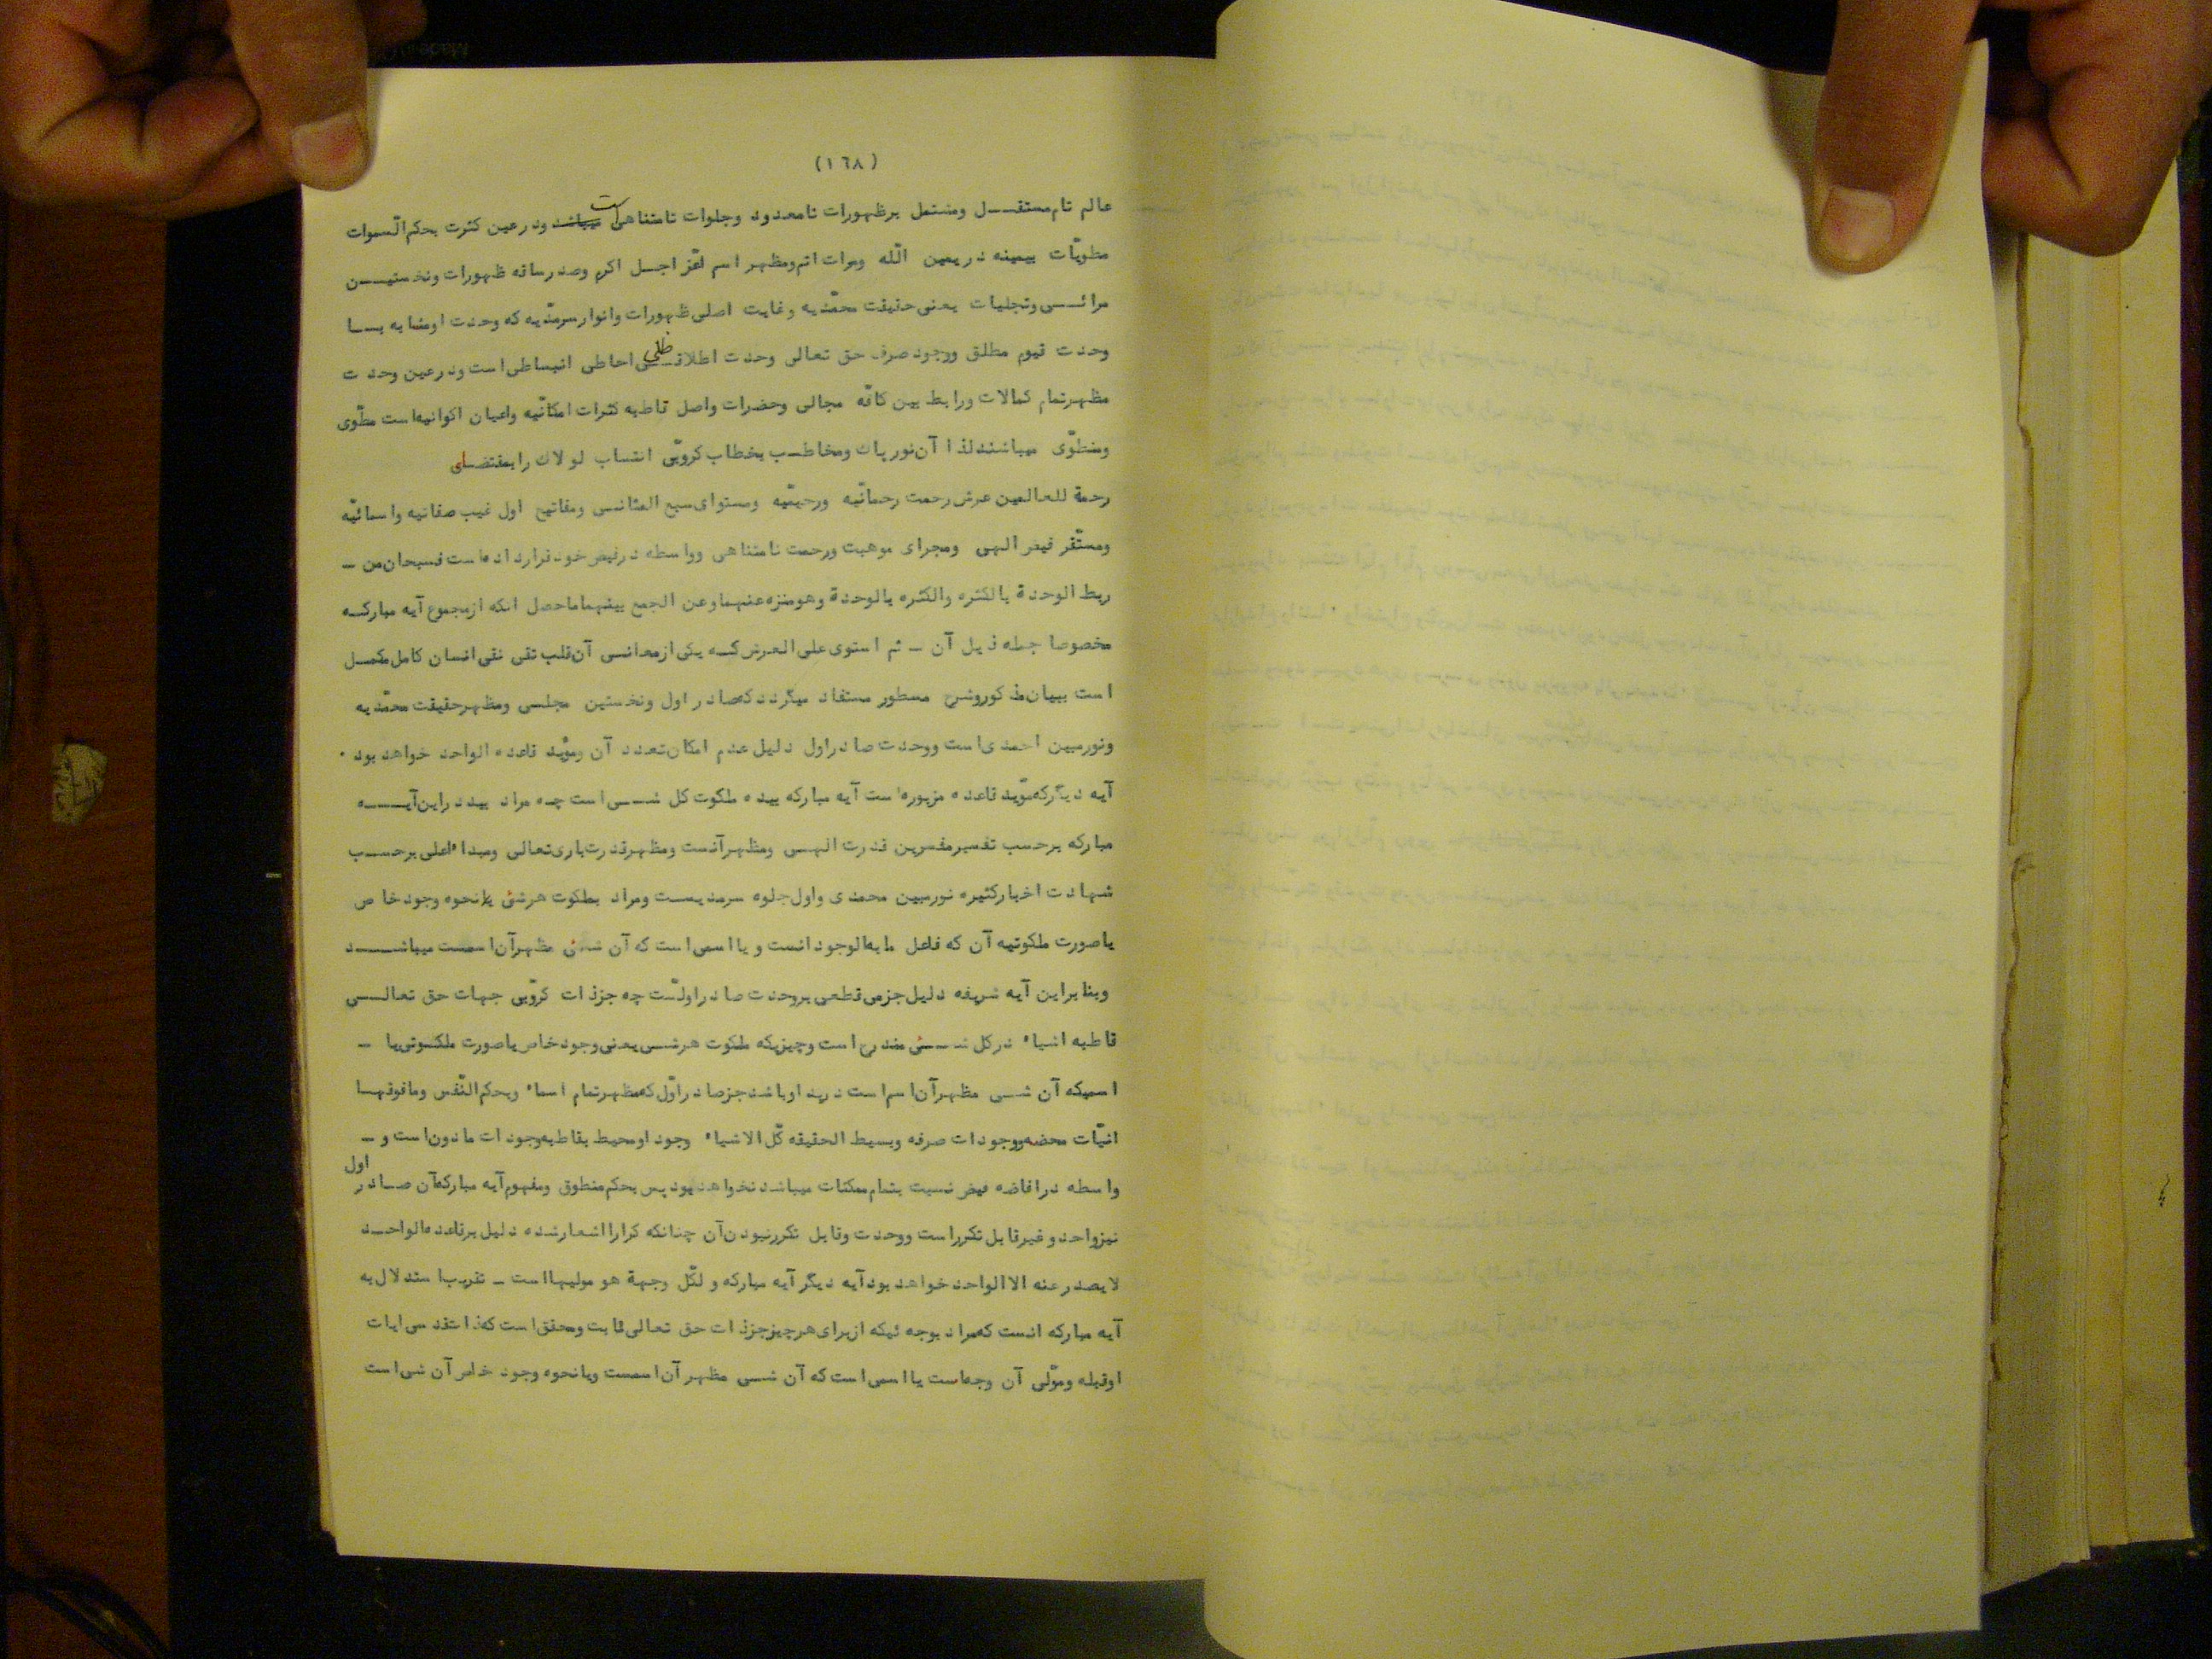 (١٦٨)
عالم تام مستقـــل ومشتمل برظهورات نامعدود وجلوات نامتناهی است ودر عین کثرت بحکم السّموات
مطویّات بیمینه در یمین اللّه ومرات اتم ومظهر اسم اعّز اجـل اکرم وصدر سانه ظهورات ونخستیــن
مرائــی وتجلیات یعنی حقیقت محمّدیه وغایت اصلی ظهورات وانوار سرمدّیه که وحدت اومشابه بــا
وحدت قیوم مطلق ووجود صرف حق تعالی وحدت اطلاقــی ظلی احاطی انبساطی است ودر عین وحدت
مظهر تمام کمالات ورابط بین کافّه مجالی وحضرات واصل قاطبه کثرات امکانّیه واعیان اکوانیه است مطّوی
ومنطوّی میباشند لذا آن نور پاک ومخاطــب بخطاب کروبّی انتساب لولاک را بمقتضـای
رحمة للعالمین عرش رحمت رحمانّیه ورحیمّیه ومستوای سبع المثانــی ومفاتیح اول غیب صفاتیه واسمائیّه
ومستّقر فیض الهی ومجرای موهبت ورحمت نامتناهی وواسطه در فیض خود قرار داده است فسبحان من ـ
ربط الوحدة بالکثره والکثره بالوحدة وهو منزه عنهما وعن الجمع بینهما ماحصل انکه از مجموع آیه مبارکــه
مخصوصا جمله ذیل آن ـ ثم استوی علی العرش کــه یکی از معانــی آن قلب تقی نقی انسان کامل مکمـل
است ببیان مذکور وشرح مسطور مستفاد میگردد که صادر اول ونخستین مجلــی ومظهر حقیقت محمّدیه
ونور مبین احمدی است ووحدت صادر اول دلیل عدم امکان تعدد آن ومؤّید قاعده الواحد خواهد بود ۰
آیه دیگر که مؤیّد قاعده مزبوره است آیه مبارکه بیده ملکوت کل شــی است چـه مراد بید در این آیـــه
مبارکه برحسب تفسیر مفسرین قدرت الهــی ومظهر آنست ومظهر قدرت باری تعالی ومبداء اعلی برحسـب
شهادت اخبار کثیره نور مبین محمدی واول جلوه سرمدیسـت ومراد بملکوت هر شئ یا نحوه وجود خاص
یا صورت ملکوتیه آن که فاعل ما به الوجود انست ویا اسمی است که آن شــئ مظهر آن اسمست میباشــد
وبنابراین آیه شریفه دلیل جزمی قطعی بر وحدت صادر اوّلست چه جز ذات کروّبی جهات حق تعالــی
قاطبه اشیاء در کل شــئ مندرج است وچیزیکه ملکوت هر شــی یعنی وجود خاص یا صورت ملکـوتی یا ـ
اسمیکه آن شــی مظهر آن اسم است در ید او باشد جز صادر اوّل که مظهر تمام اسماء وبحکم النّفس ومافوقهـا
انیّات محضه ووجودات صرفه وبسیط الحقیقه کّل الاشیاء وجود او محیط بقاطبه وجودات مادون است و ـ
واسطه در افاضه فیض نسبت بتمام ممکنات میباشد نخواهد بود پس بحکم منطوق ومفهوم آیه مبارکه آن صـادر اول
نیز واحد وغیر قابل تکرر است ووحدت وقابل تکرر نبودن آن چنانکه کرارا اشعار شده دلیل بر قاعده الواحـد
لایصدر عنه الا الواحد خواهد بود آیه دیگر آیه مبارکه ولکّل وجهة هو مولیها است ـ تقریب استدلال به
آیه مبارکه انست که مراد بوجه ئیکه از برای هر چیز جز ذات حق تعالی ثابت ومحقق است که ذات قدسی ایات
او قبله ومولّی آن وجه است یا اسمی است که آن شــی مظهر آن اسمست ویا نحوه وجود خاص آن شی است